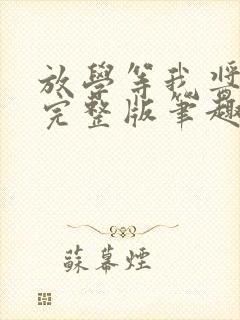 放學等我 將
完整版筆趣
蘇幕煙